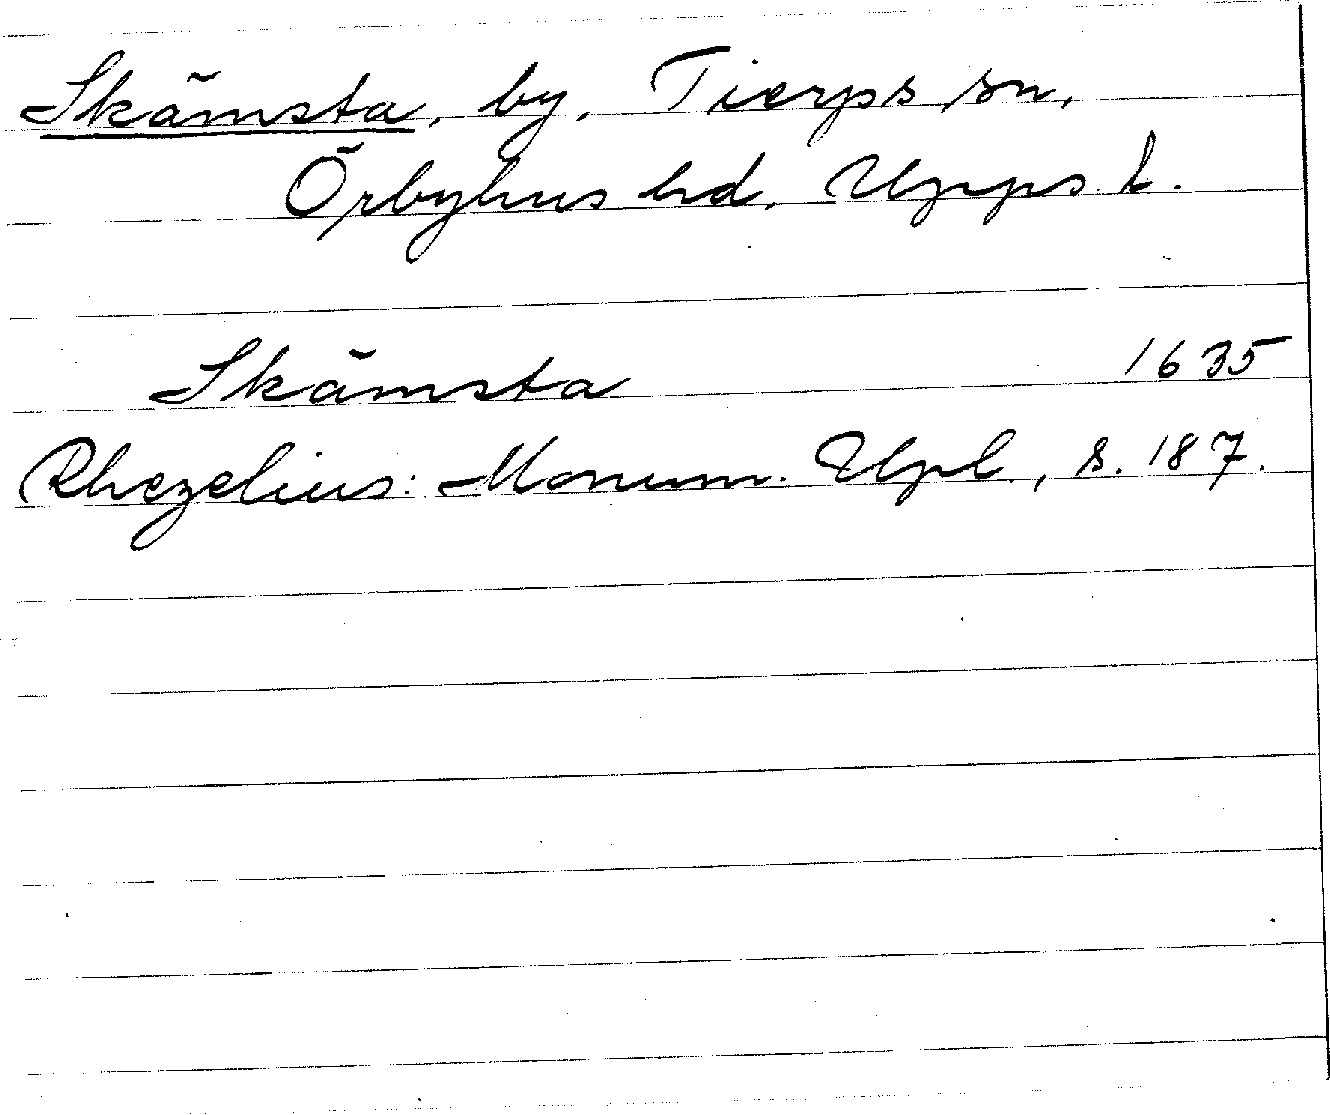 Skämsta, by, Tierps sn,
Örbyhus hd, Upps. l.
Skämsta 1635
Rhezelius: Monum. Upl., s. 187.